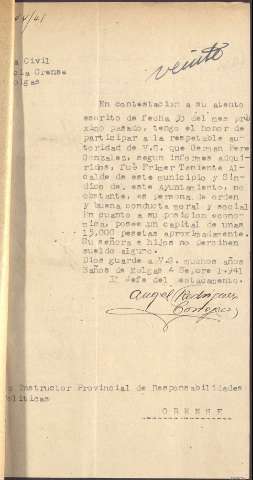 veinte
a Civil
cia Orense
olgas
En contestacion a su atento
escrito de fecha 30 del mes pró
ximo pasado, tengo el honor de
participar a la respetable au-
toridad de V.S. que German Pere
Gonzalez, segun informes adqui-
ridos, fué Primer Teniente Al-
calde de este municipio y Sin-
dico de este Ayuntamiento, no
obstante, es persona de orden
y buena conducta moral y social
En cuanto a su posicion econo-
mica, posee un capital de unas
15.000 pesetas aproximadamente.
Su señora e hijos no perciben
sueldo alguno.
Dios guarde a V.S. muchos años
Baños de Molgas 4 1.941
El Jefe del Destacamento.
Angel Rodriguez
Instructor Provincial de Responsabilidades
oliticas
ORENSE